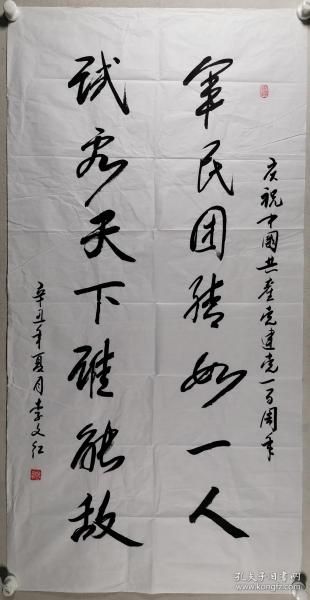 庆祝中国共产党建党一百周年
军民团结如一人
试看天下谁能敌
辛丑年夏月李文红
孔夫子旧书网